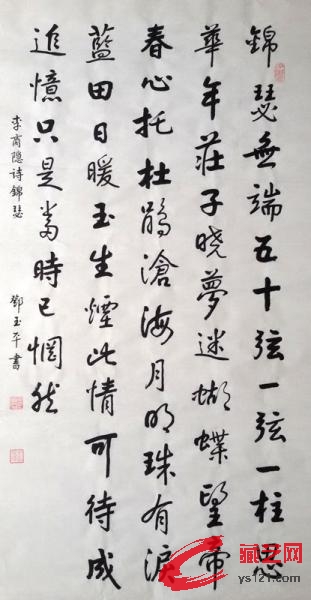 錦瑟無端五十弦一弦一柱思
華年莊子晓夢迷蝴蝶望帝
春心托杜鹃滄海月明珠有淚
藍田日暖玉生煙此情可待成
追憶只是當時已惘然
李商隐诗錦瑟
鄧玉平書
藏艺网
ys1211.com